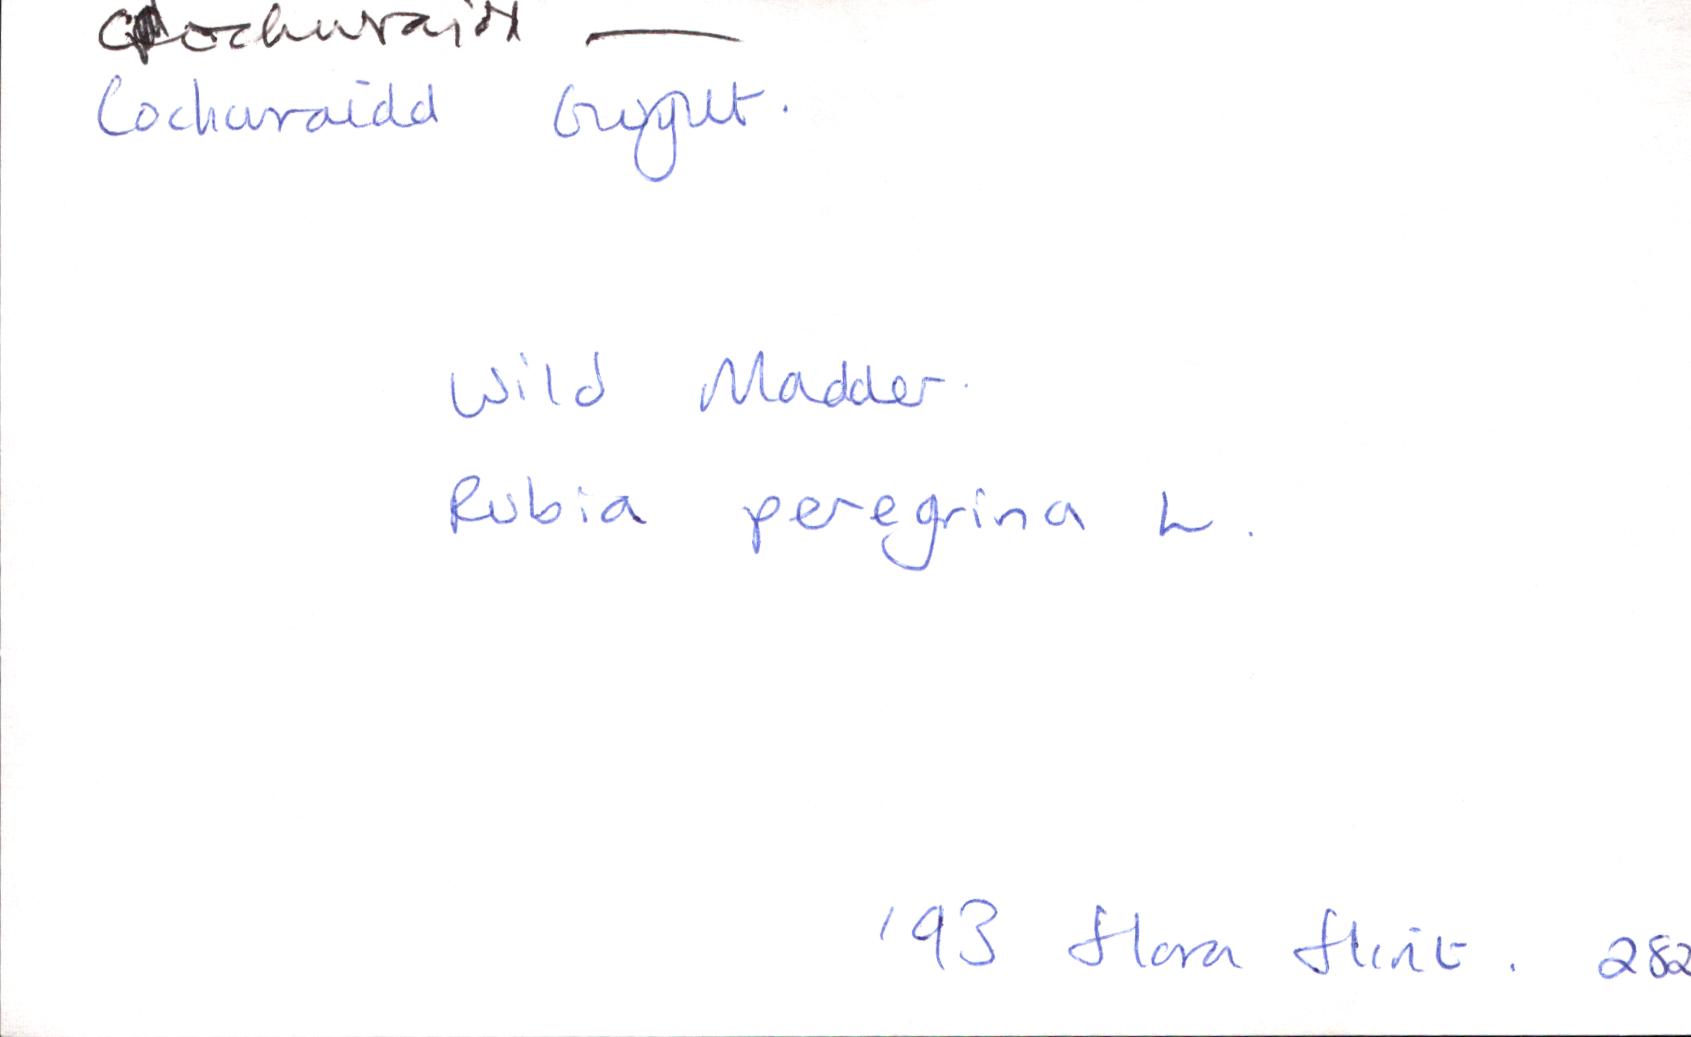 Cochwraidd ——
Cochwraidd Gwyllt.
Wild Madder.
Rubia peregrina L.
'93 Flora Flint. 282